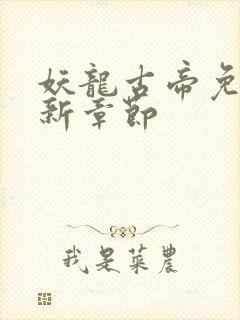 妖龍古帝免
新章節
我是菜農